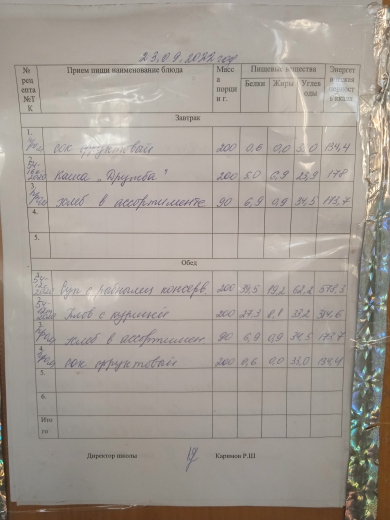 23.09.2022 год
№ рецепта №ТК Прием пищи наименование блюда Масса порции г. Пищевые вещества Энергетическая ценность ккал
Белки Жиры Углеводы
Завтрак
1. сок фруктовый 200 0,6 0,0 33,0 134,4
2. Каша "Дружба" 200 5,0 23,9 178
3. хлеб в ассортименте 90 6,9 0,9 34,5 173,7
4.
5.
Обед
Суп с рыбными консерв. 200 19,2 62,2 578,3
Плов с курицей 200 27,3 8,1 33,2 314,6
хлеб в ассортимен. 90 6,9 0,9 34,5 173,7
сок фруктовый 200 0,6 0,0 33,0 134,4
5.
6.
Итого
Директор школы Каримов Р.Ш